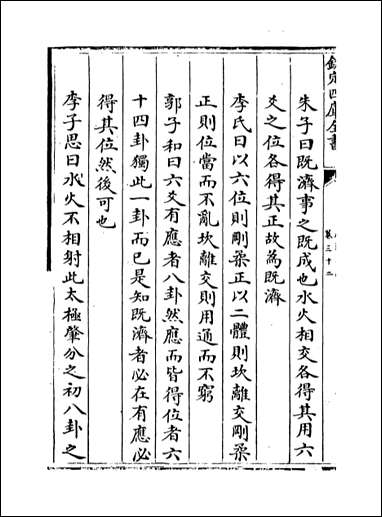 欽定四庫全書
卷三十二
朱子曰既濟事之既成也水火相交各得其用六
爻之位各得其正故為既濟
李氏曰以六位則剛柔正以二體則坎離交剛柔
正則位當而不亂坎離交則用通而不窮
郭子和曰六爻有應者八卦然應而皆得位者六
十四卦獨此一卦而已是知既濟者必在有應必
得其位然後可也
李子思曰水火不相射此太極肇分之初八卦之